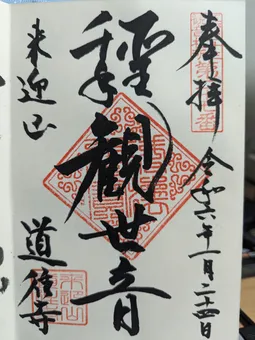 奉拝
令和六年一月二十四日
聖
千手
観世音
来迎山
道往寺